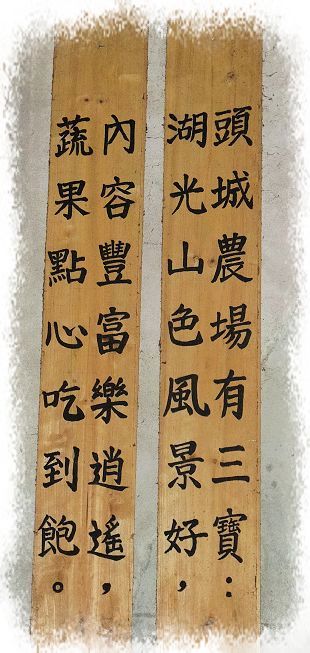 頭城農場有三寶：
湖光山色風景好，
內容豐富樂逍遙，
蔬果點心吃到飽。